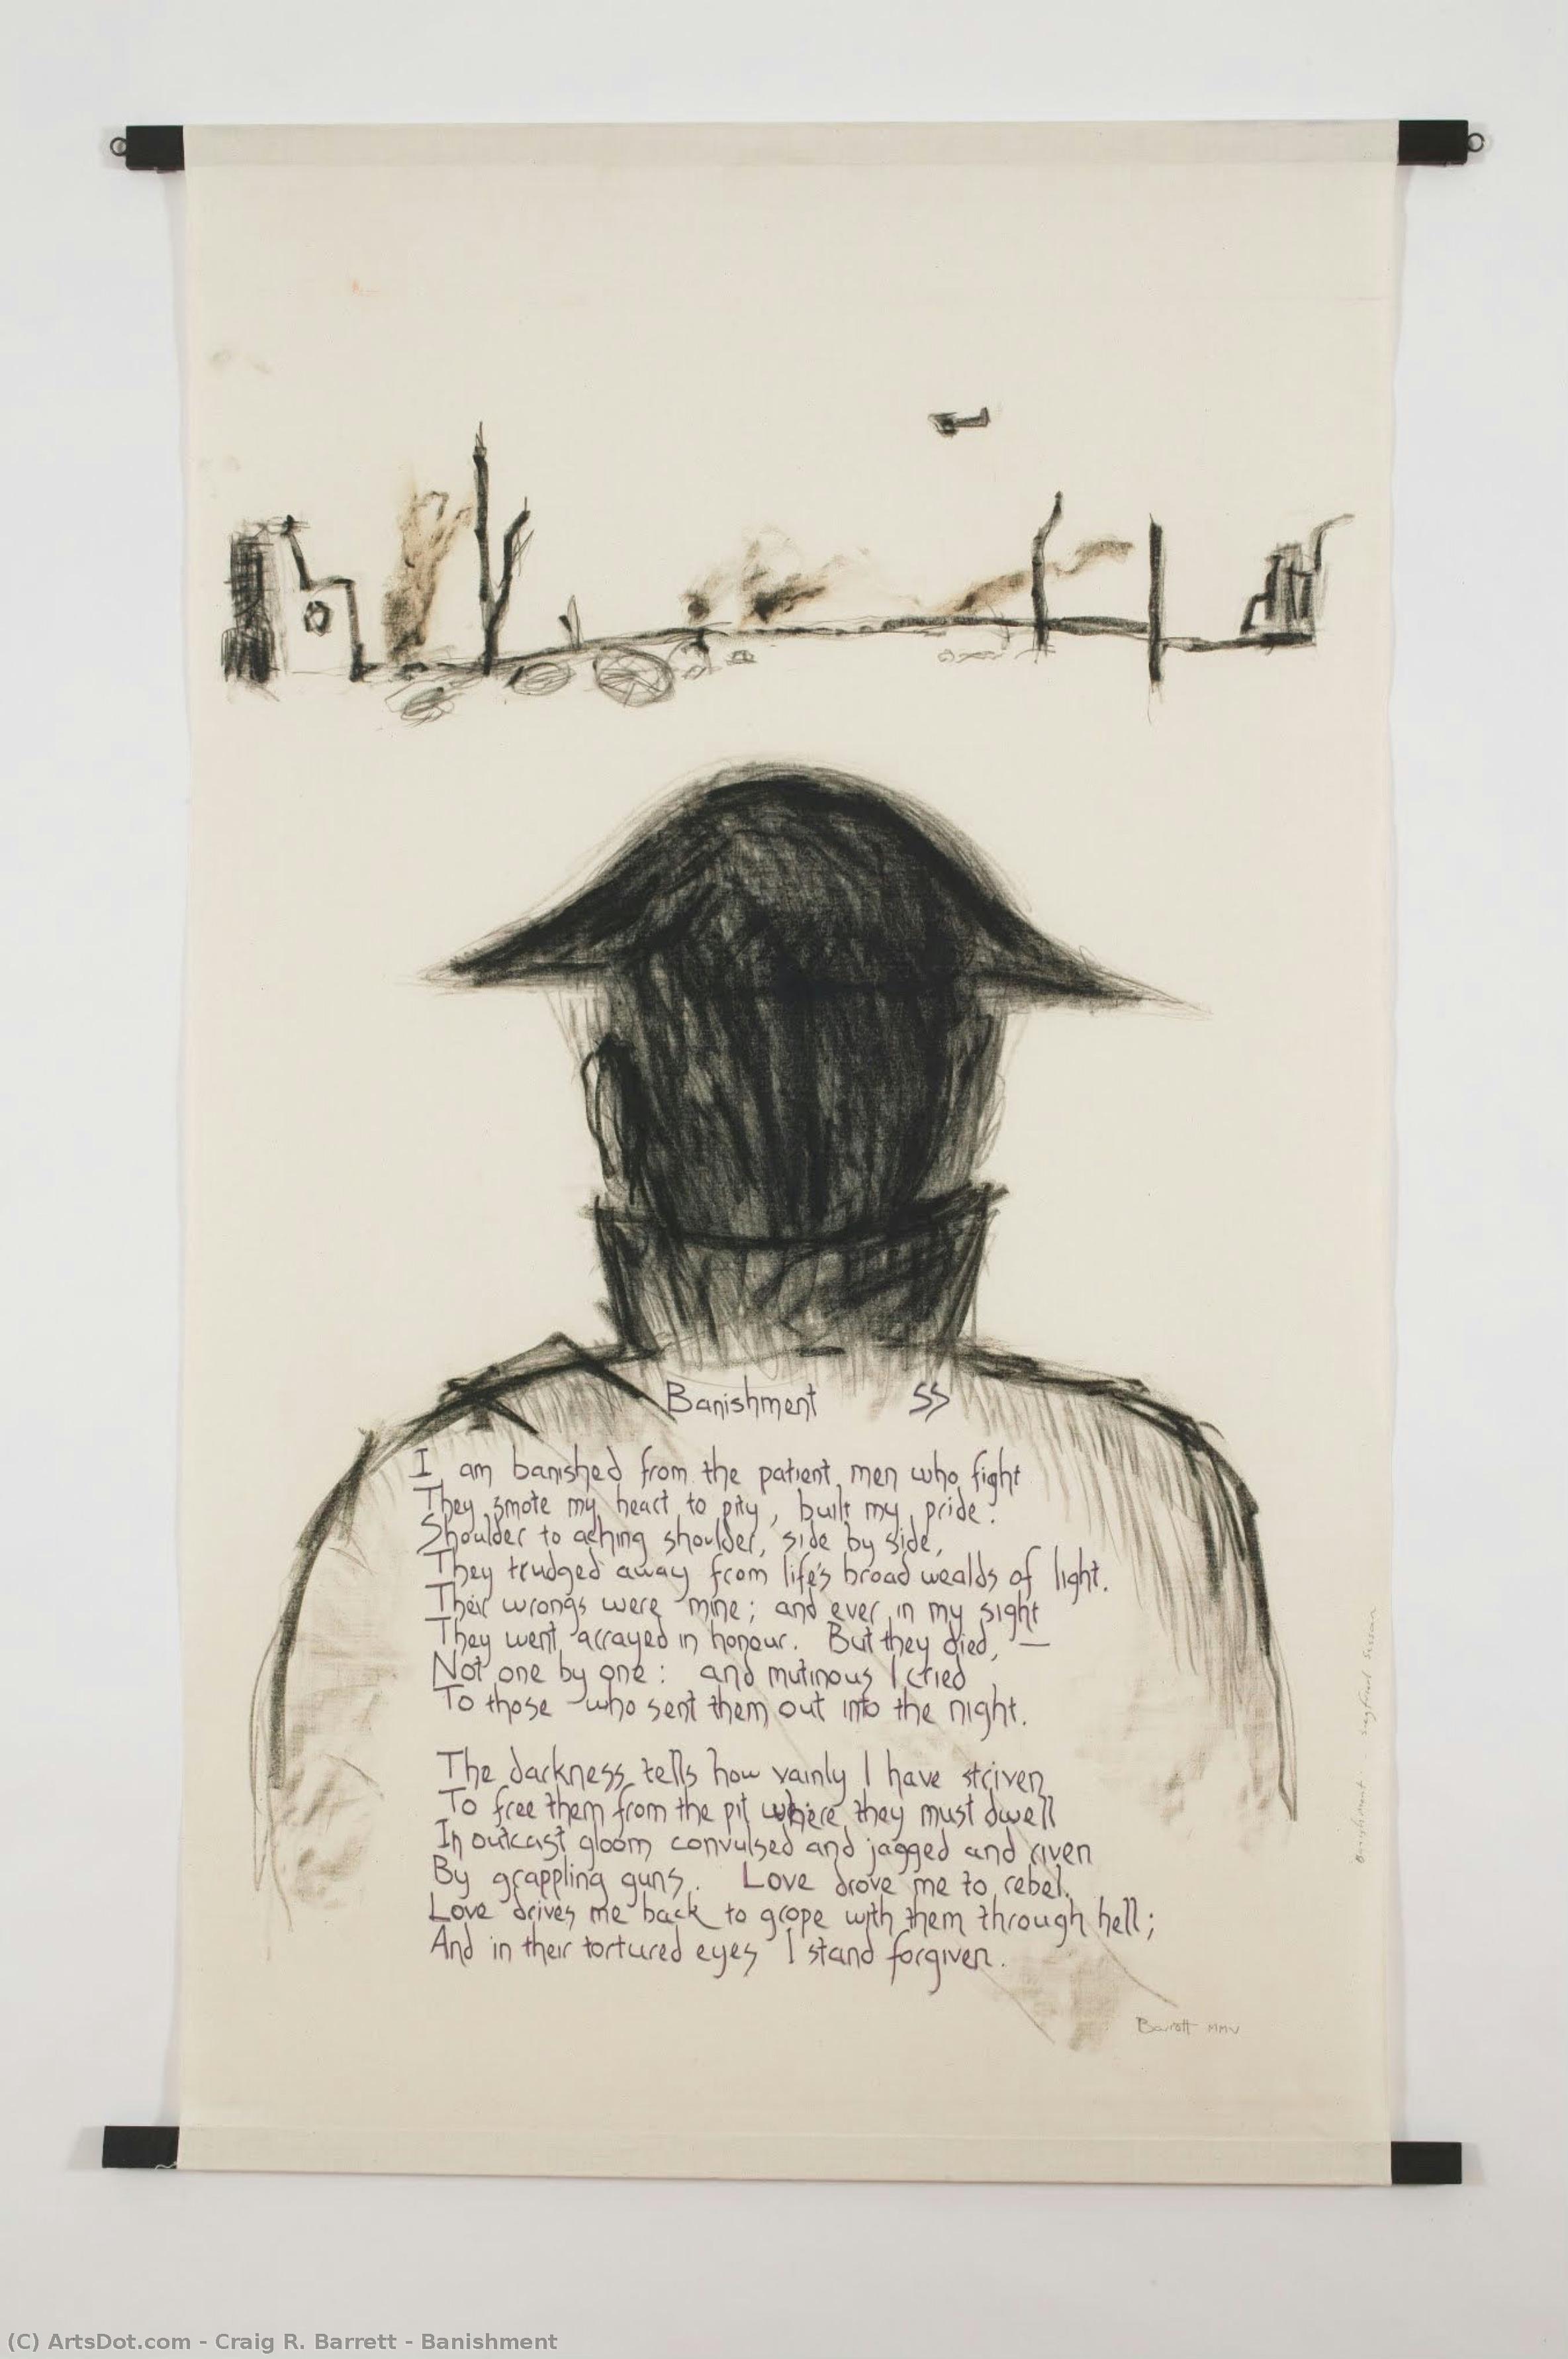 Banishment SS
I am banished from the patient men who fight
They smote my heart to pity, built my pride.
Shoulder to aching shoulder, side by side,
They trudged away from life's broad wealds of light.
Their wrongs were mine; and ever in my sight
They went arrayed in honour. But they died, —
Not one by one: and mutinous I cried
To those who sent them out into the night.
The darkness tells how vainly I have striven
To free them from the pit where they must dwell
In outcast gloom convulsed and jagged and riven
By grappling guns. Love drove me to rebel.
Love drives me back to grope with them through hell;
And in their tortured eyes I stand forgiven.
Barrett MMV
Banishment - Siegfried Sassoon
(C) ArtsDot.com - Craig R. Barrett - Banishment